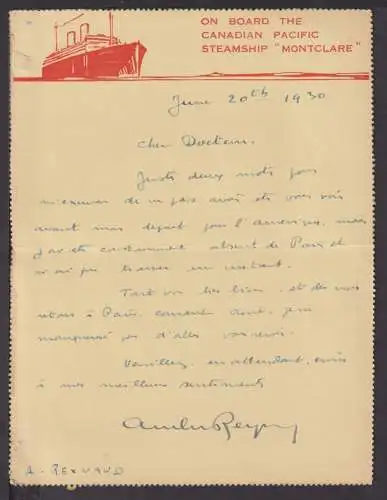 ON BOARD THE
CANADIAN PACIFIC
STEAMSHIP "MONTCLARE"
June 20th 1930
Cher Docteur,
Juste deux mots pour
m'excuser de ne pas avoir été vous voir
avant mon départ pour l'Amérique, mais
j'ai été constamment absent de Paris et
n'ai pu trouver un instant.
Tout va très bien et dès mon
retour à Paris, courant août, je ne
manquerai pas d'aller vous voir.
Veuillez, en attendant, croire
à mes meilleurs sentiments
A - REYNAUD